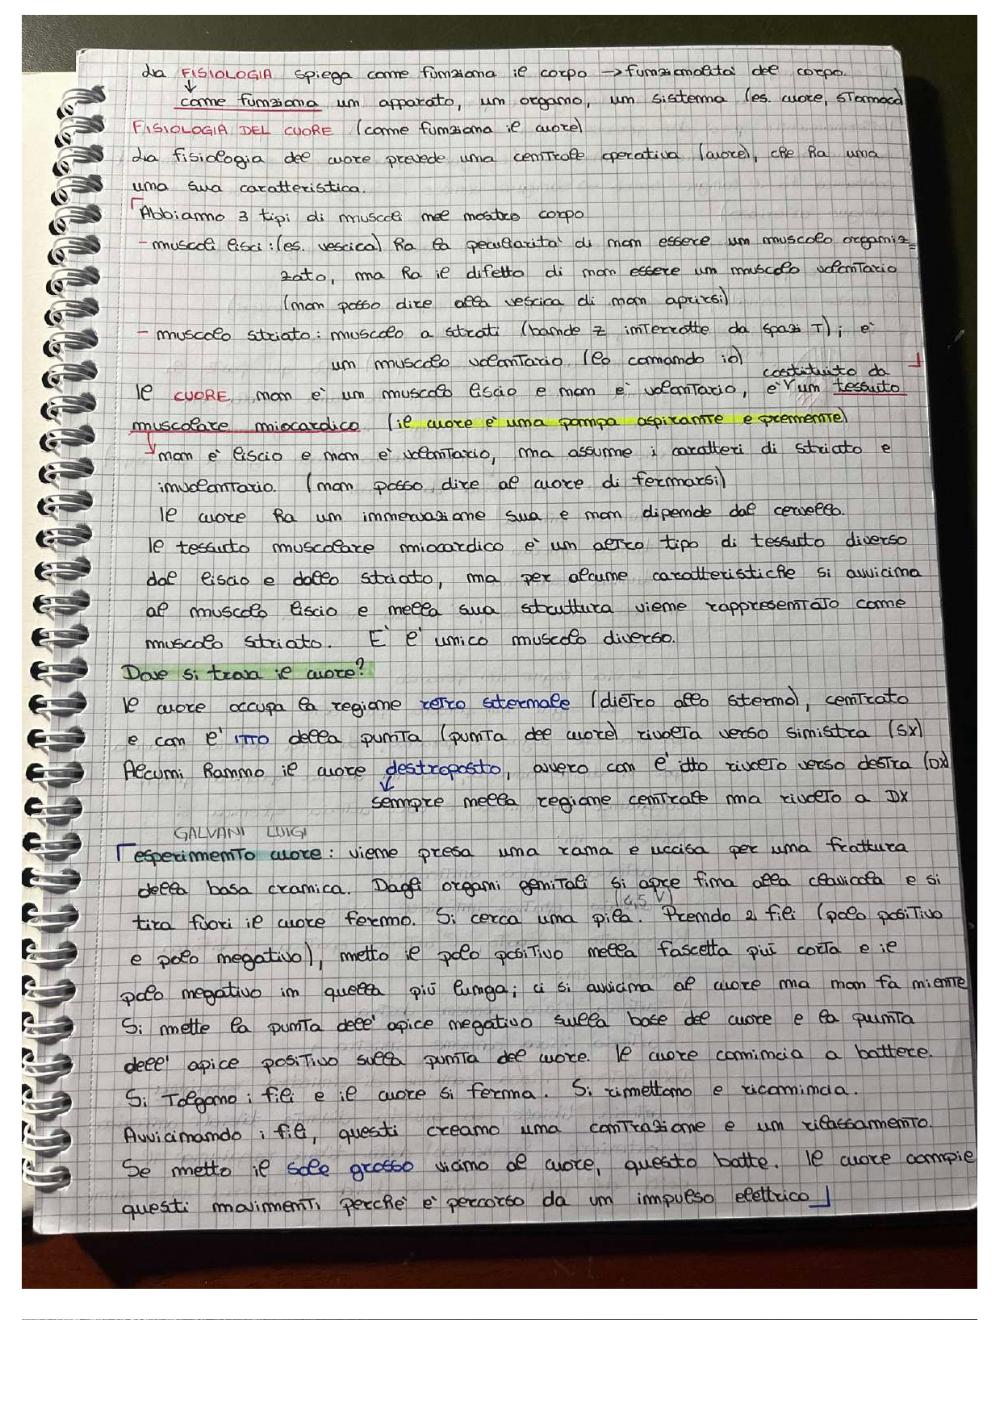 La FISIOLOGIA spiega come funziona il corpo → funzionalità del corpo.
↓
come funziona un apparato, un organo, un sistema (es. cuore, stomaco)
FISIOLOGIA DEL CUORE (come funziona il cuore)
La fisiologia del cuore prevede una centrale operativa (cuore), che ha una
una sua caratteristica.
Abbiamo 3 tipi di muscoli nel nostro corpo
- muscoli lisci: (es. vescica) ha la peculiarità di non essere un muscolo organiz
zato, ma ha il difetto di non essere un muscolo volontario
(non posso dire alla vescica di non aprirsi)
- muscolo striato: muscolo a strati (bande z interrotte da spazi T); è
un muscolo volontario (lo comando io)
costituito da
Il CUORE non è un muscolo liscio e non è volontario, è un tessuto
muscolare miocardico (il cuore è una pompa aspirante e premente)
non è liscio e non è volontario, ma assume i caratteri di striato e
involontario. (non posso dire al cuore di fermarsi)
Il cuore ha un innervazione sua e non dipende dal cervello.
Il tessuto muscolare miocardico è un altro tipo di tessuto diverso
dal liscio e dallo striato, ma per alcune caratteristiche si avvicina
al muscolo liscio e nella sua struttura viene rappresentato come
muscolo striato. È l'unico muscolo diverso.
Dove si trova il cuore?
Il cuore occupa la regione retro sternale (dietro allo sterno), centrato
e con l'itto della punta (punta del cuore) rivolta verso sinistra (SX)
Alcuni hanno il cuore destroposto, ovvero con l'itto rivolto verso destra (DX)
↓
sempre nella regione centrale ma rivolto a DX
GALVANI LUIGI
esperimento cuore: viene presa una rana e uccisa per una frattura
della basa cranica. Dagli organi genitali si apre fino alla clavicola e si
(4,5 V)
tira fuori il cuore fermo. Si cerca una pila. Prendo 2 fili (polo positivo
e polo negativo), metto il polo positivo nella fascetta più corta e il
polo negativo in quella più lunga; ci si avvicina al cuore ma non fa niente
Si mette la punta dell'apice negativo sulla base del cuore e la punta
dell'apice positivo sulla punta del cuore. Il cuore comincia a battere.
Si tolgono i fili e il cuore si ferma. Si rimettono e ricomincia.
Avvicinando i fili, questi creano una contrazione e un rilassamento.
Se metto il sale grosso vicino al cuore, questo batte. Il cuore compie
questi movimenti perché è percorso da un impulso elettrico